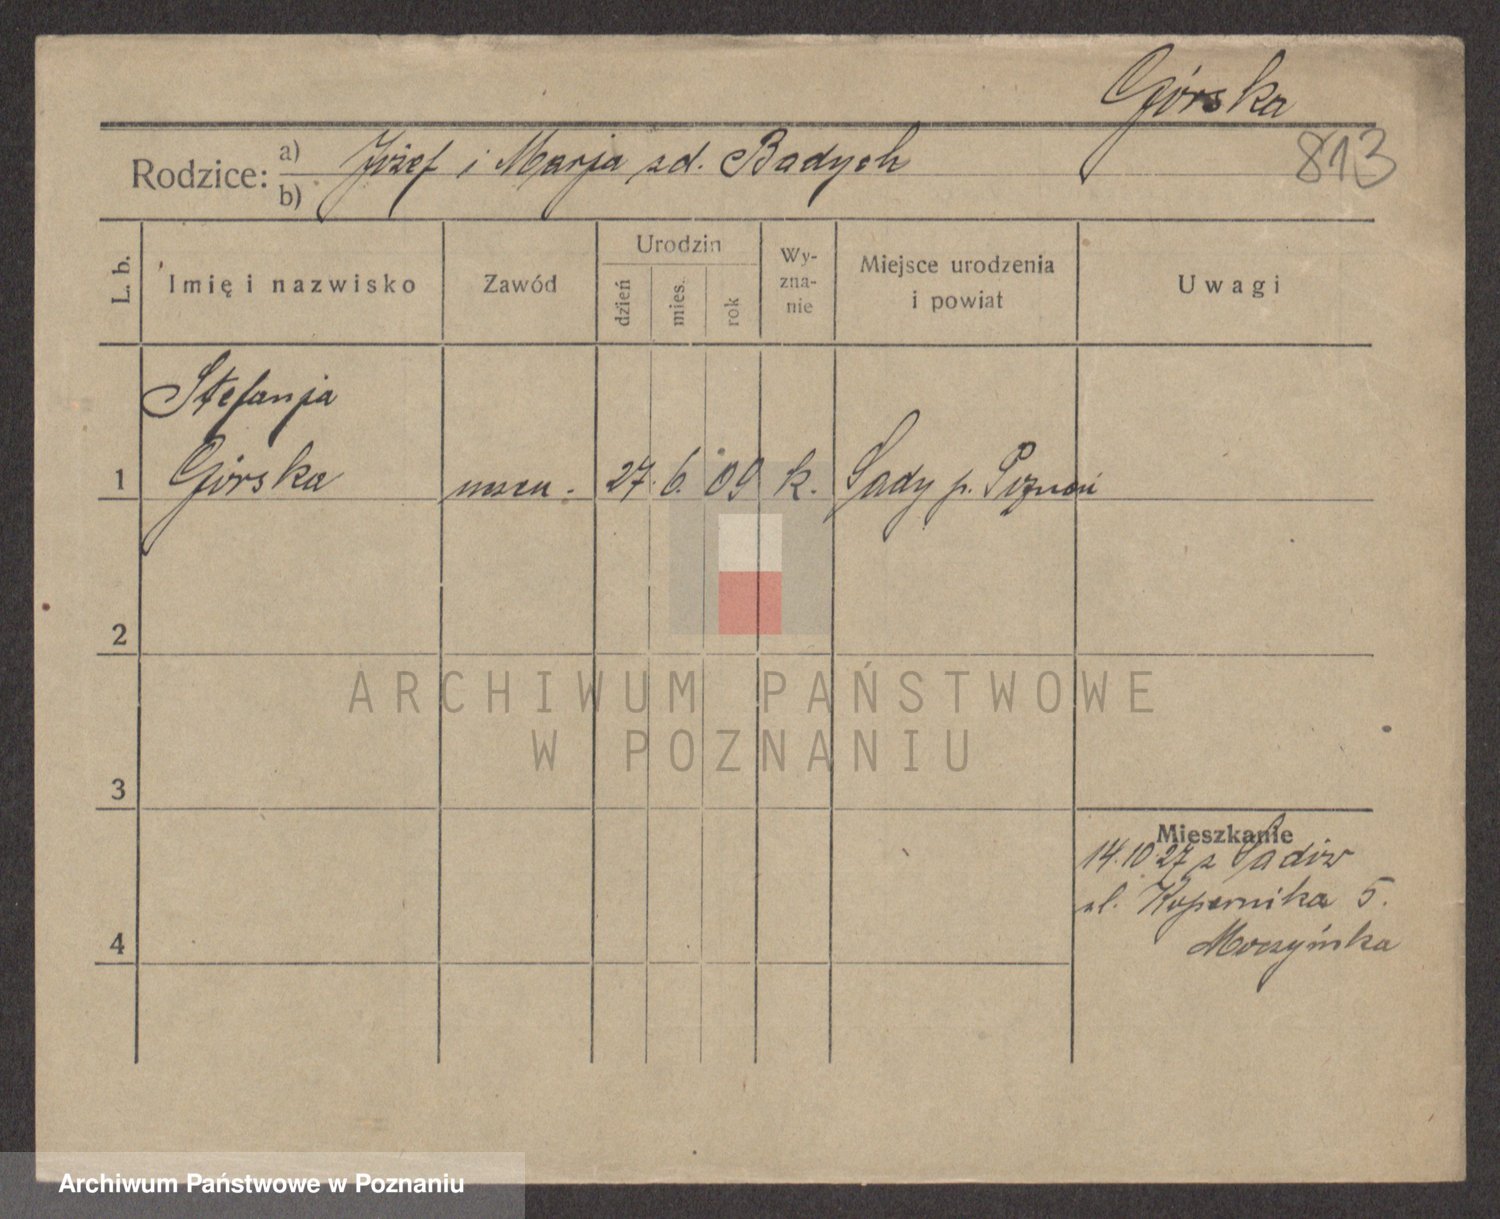 Górska
813
Rodzice: a) Józef i Marja zd. Badych
b)
L. b. Imię i nazwisko Zawód Urodzin dzień mies. rok Wy-zna-nie Miejsce urodzenia i powiat Uwagi
Stefanja
1 Górska uczen. 27. 6. 09 k. Sady p. Poznań
2
ARCHIWUM PAŃSTWOWE
W POZNANIU
3
Mieszkanie
14.10 27 z Sadów
ul. Kopernika 5.
4
Archiwum Państwowe w Poznaniu